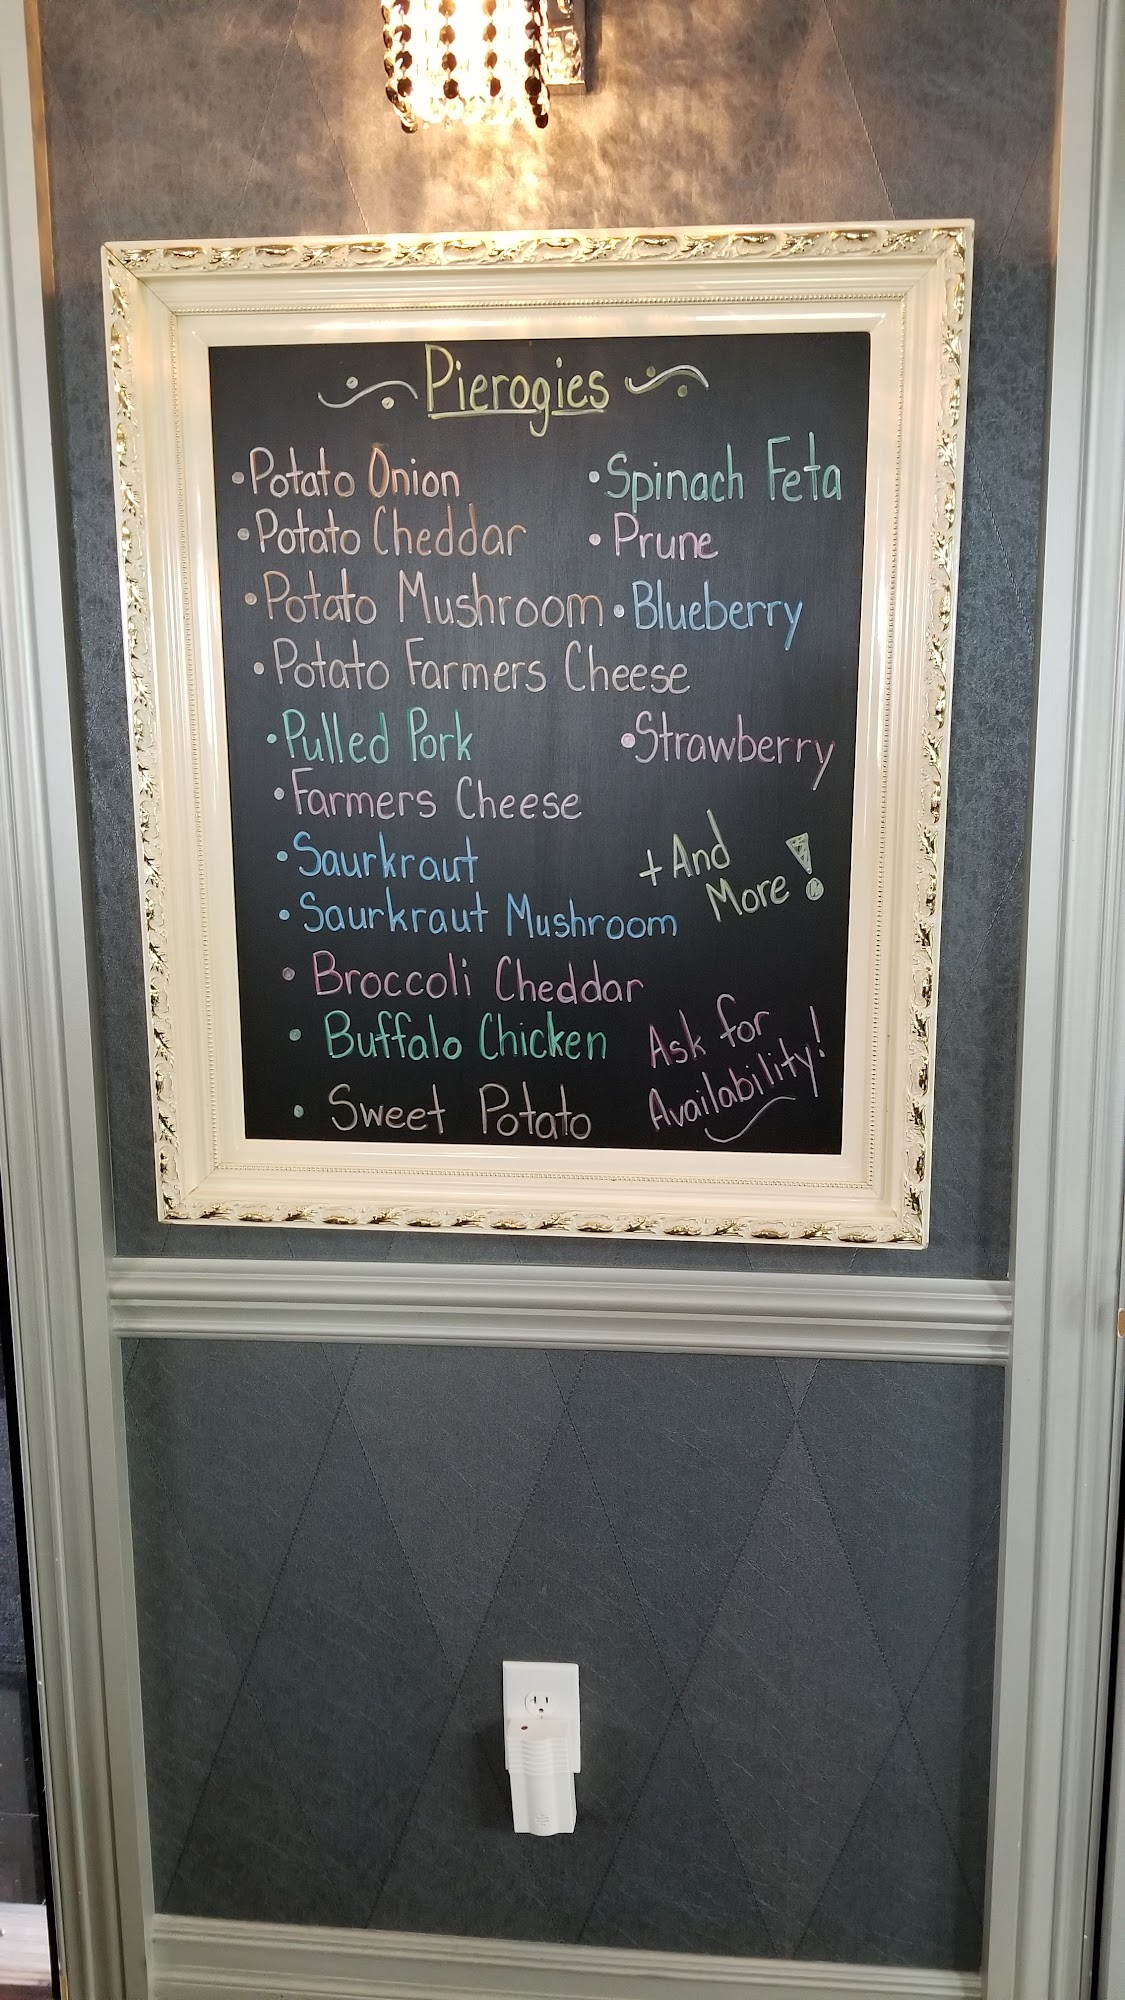 Pierogies
• Potato Onion
• Potato Cheddar
• Potato Mushroom
• Potato Farmers Cheese
• Pulled Pork
• Farmers Cheese
• Saurkraut
• Saurkraut Mushroom
• Broccoli Cheddar
• Buffalo Chicken
• Sweet Potato
• Spinach Feta
• Prune
• Blueberry
• Strawberry
+ And
More!
Ask for
Availability!